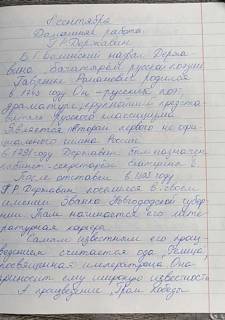 1 сентября
Домашняя работа.
Г.Р Державин
В.Г Белинский назвал Держа
вина „ богатырём русской поэзии
Гавриил Романович родился
в 1743 году Он - русский поэт,
драматург, крупнейший предста
витель русского классицизма.
Является автором первого не офи
циального гимна России.
в 1791 году Державин был назначен
кабинет - секретарём
После отставки в 1803 году
Г.Р Державин поселился в своём
имении Званка Новгородской губер
нии. Там начинается его лите
ратурная карьера.
Самым известным его прои
ведением считается ода „Фелица",
посвящённая императрице Она
приносит ему широкую известность
А произведение „Гром Победы